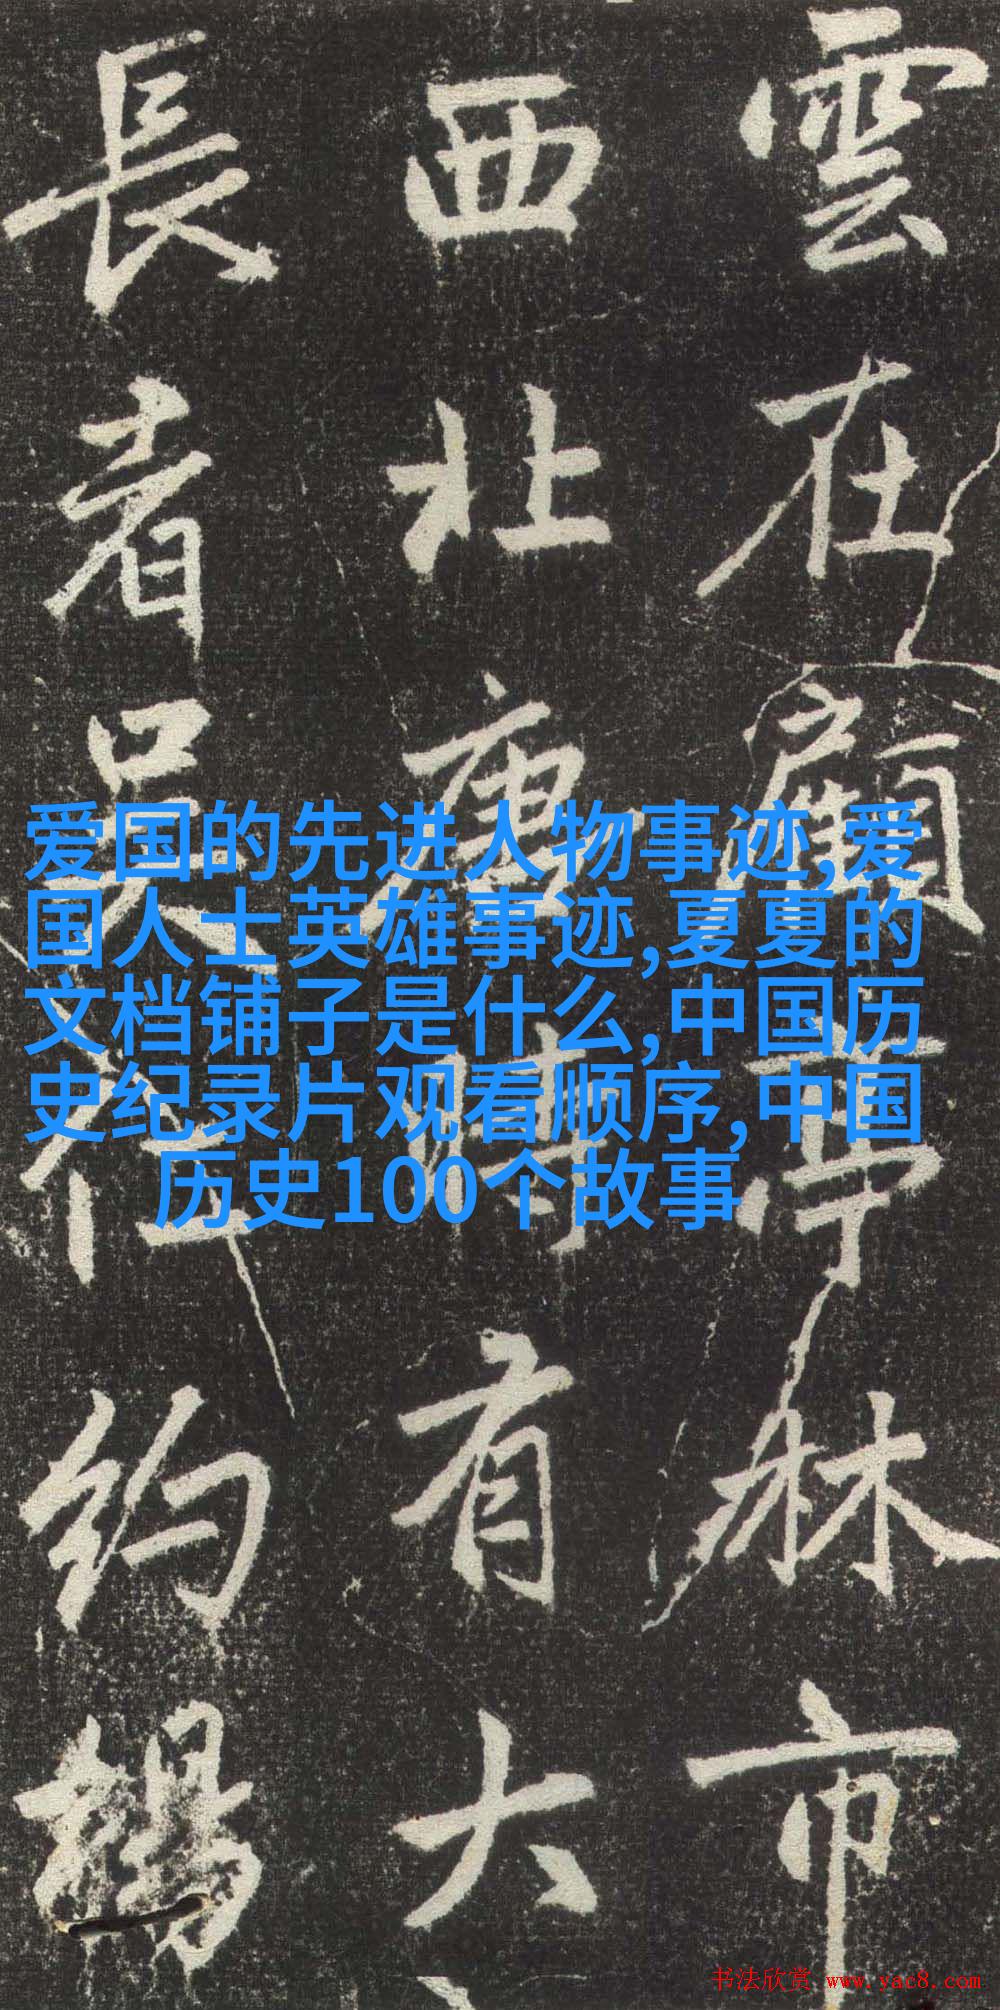 雲在顧亭林市
西北時有大
長者吳約
爱国的先进人物事迹,爱
国人士英雄事迹,夏夏的
文档铺子是什么,中国历
史纪录片观看顺序,中国
历史100个故事
书法欣赏 www.yac8.com